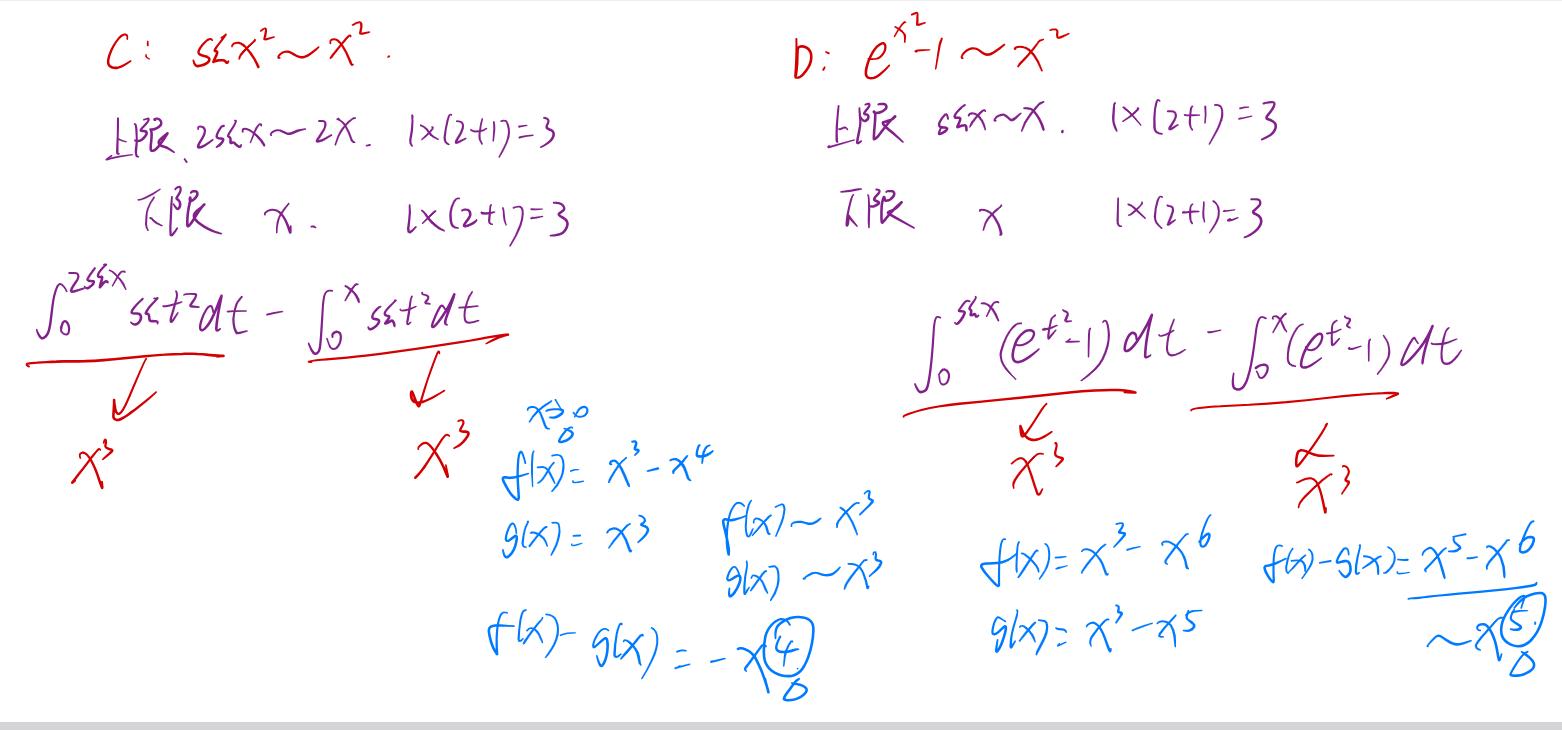 C: sin x² ~ x².
上限、2sin x ~ 2x. 1×(2+1)=3
下限 x. 1×(2+1)=3
∫₀^{2sin x} sin t² dt - ∫₀^{x} sin t² dt
x³ x³
x→0
f(x) = x³ - x⁴
g(x) = x³
f(x) ~ x³
g(x) ~ x³
f(x) - g(x) = -x⁴
D: e^{x²}-1 ~ x²
上限 sin x ~ x. 1×(2+1)=3
下限 x 1×(2+1)=3
∫₀^{sin x} (e^{t²}-1) dt - ∫₀^{x} (e^{t²}-1) dt
x³ x³
f(x) = x³ - x⁶
g(x) = x³ - x⁵
f(x)-g(x) = x⁵ - x⁶
~ x⁵